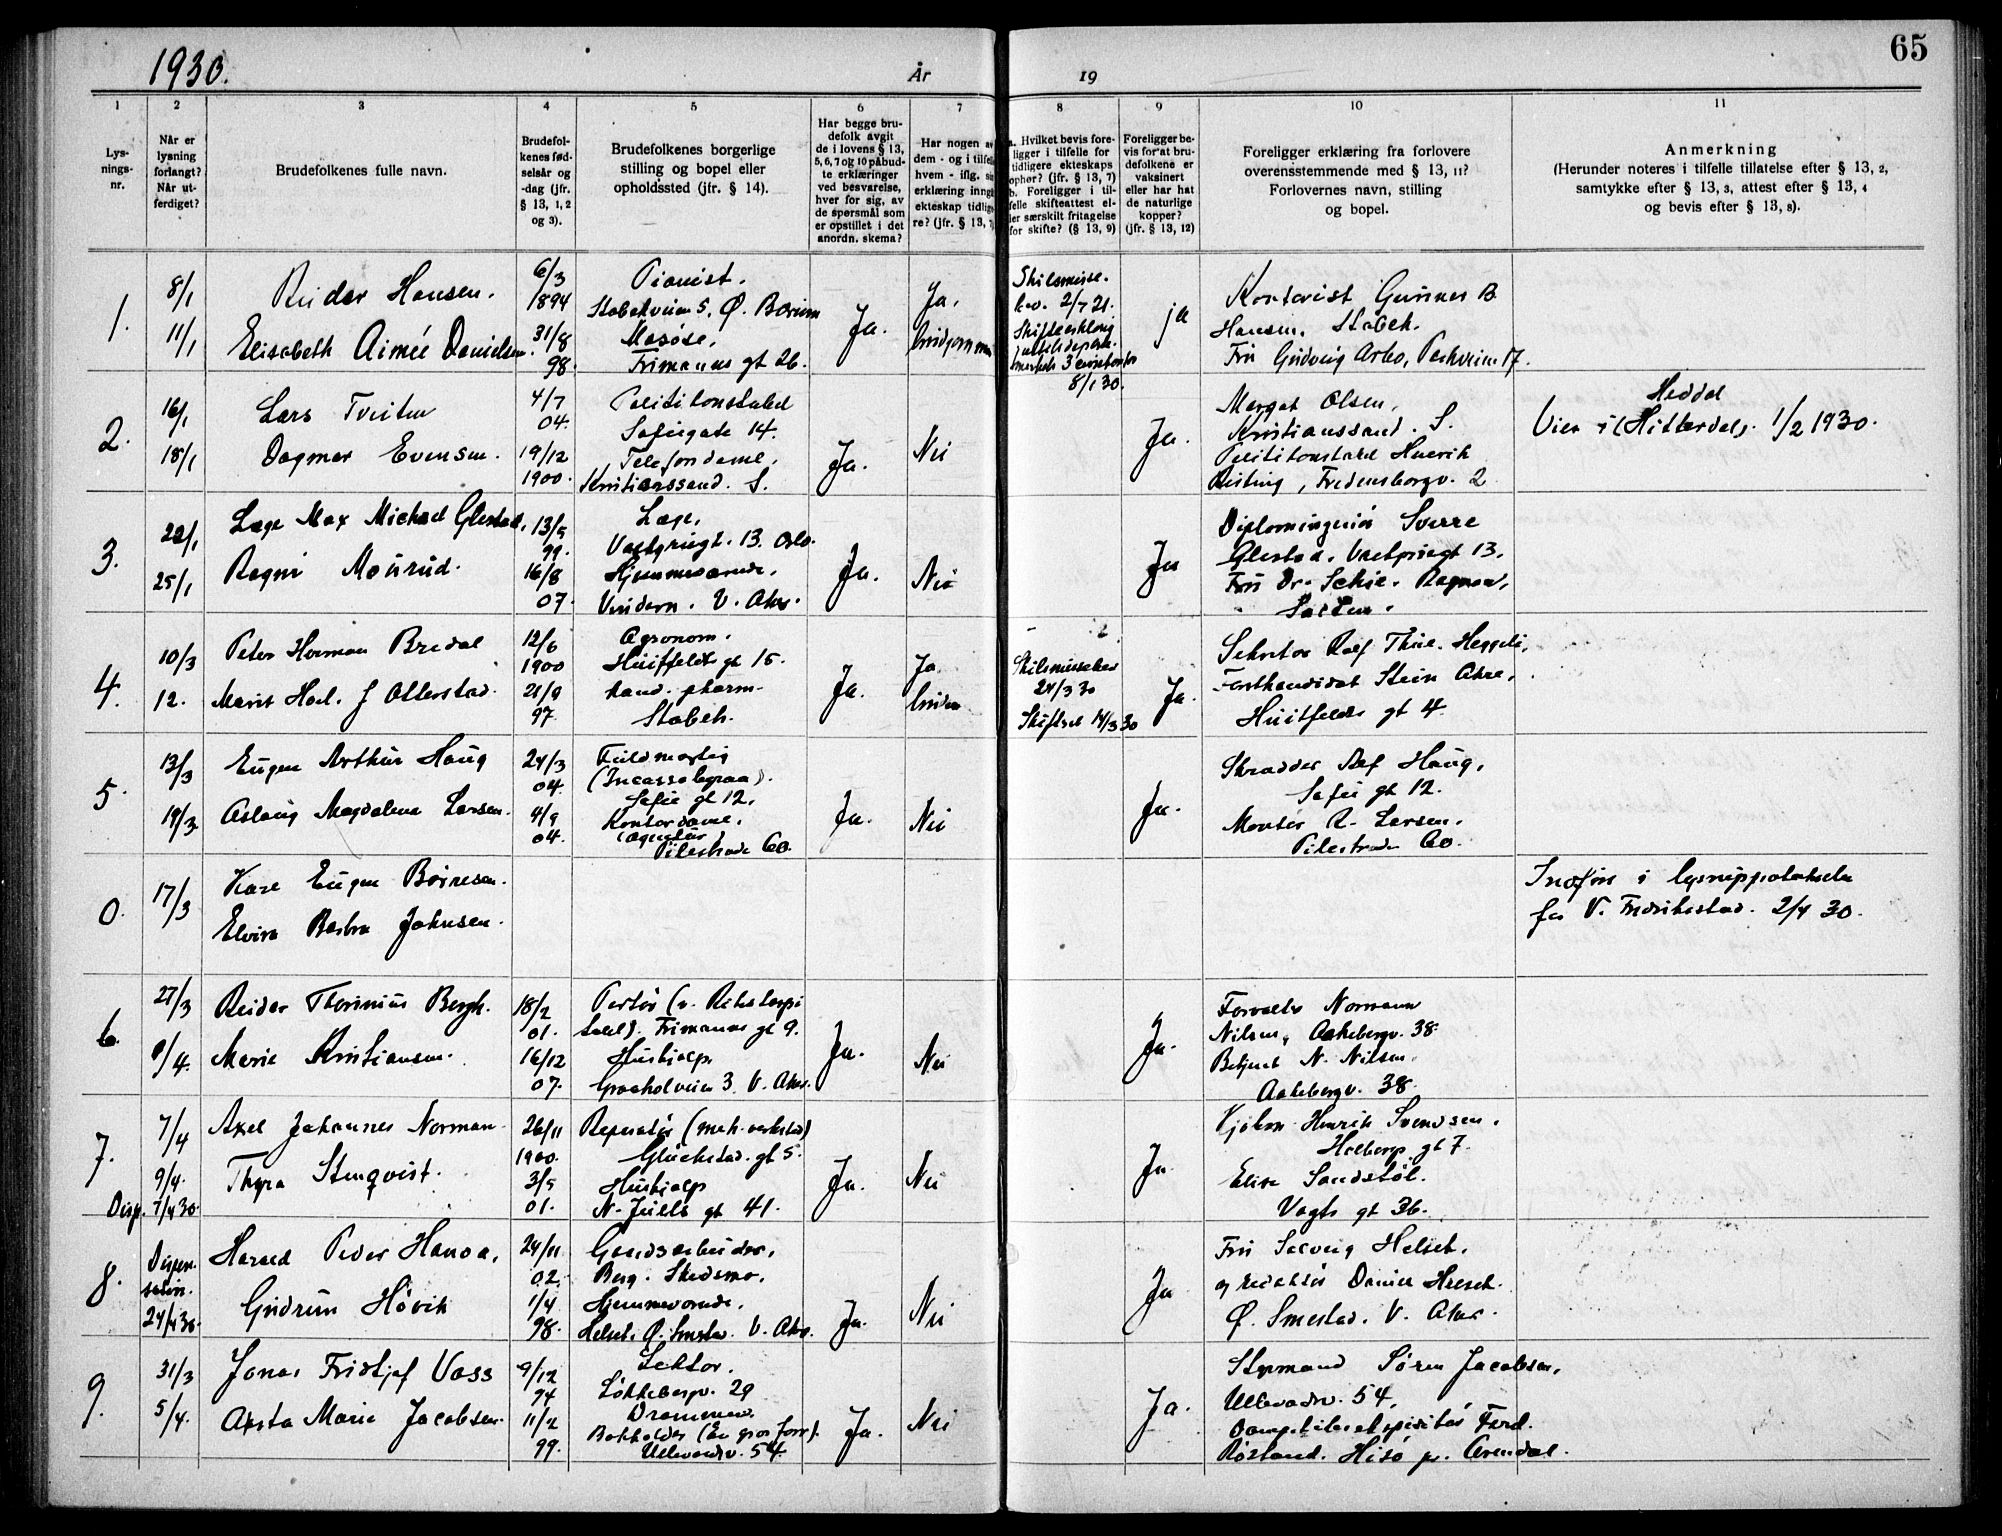 1930.
År
19
65
1
2
3
4
5
6
7
8
9
10
11
Lys-
nings-
nr.
Når er
lysning
forlangt?
Når ut-
ferdiget?
Brudefolkenes fulle navn.
Brudefol-
kenes fød-
selsår og
-dag (jfr.
§ 13, 1, 2
og 3).
Brudefolkenes borgerlige
stilling og bopel eller
opholdssted (jfr. § 14).
Har begge bru-
defolk avgit
de i lovens § 13,
5, 6, 7 og 10 påbud-
te erklæringer
ved besvarelse,
hver for sig, av
de spørsmål som
er opstillet i det
anordn. skema?
Har nogen av
dem - og i tilfelle
hvem - iflg. sin
erklæring inngå
ekteskap tidlig
re? (jfr. § 13, 7)
a. Hvilket bevis fore-
ligger i tilfelle for
tidligere ekteskaps
ophør? (§ 13, 7)
b. Foreligger i til-
felle skifteattest el-
ler særskilt fritagelse
for skifte? (§ 13, 9)
Foreligger be-
vis for at bru-
defolkene er
vaksinert
eller har hat
de naturlige
kopper?
(jfr. § 13, 12)
Foreligger erklæring fra forlovere
overensstemmende med § 13, 11?
Forlovernes navn, stilling
og bopel.
Anmerkning
(Herunder noteres i tilfelle tillatelse efter § 13, 2,
samtykke efter § 13, 3, attest efter § 13, 4
og bevis efter § 13, 8).
1.
8/1
11/1
Reidar Hansen.
Elisabeth Aimée Danielsen.
6/3
1894
31/8
98.
Pianist.
Stabekveien 5, Ø. Bærum
Masøse,
Frimanns gt 26.
Ja.
Ja,
brudgommen
Skilsmisse-
bev. 2/7 21.
8/1 30.
ja
Gunnar B.
Hansen, Stabek.
Fru Gudveig Arbo, Parkveien 17.
2.
16/1
18/1
Lars Tveiten
Dagmar Evensen.
4/7
04.
19/12
1900.
Politikonstabel
Sofiegate 14.
Telefondame.
Kristianssand. S.
Ja.
Nei
Ja.
Margot Olsen,
Kristianssand. S.
Politikonstabel Henrik
Risting, Fredensborgv. 2
Heddal
Viet i (Hitterdal). 1/2 1930.
3.
22/1
25/1
Læge Max Michael Glestad,
Ragni Mourud.
13/5
99.
16/8
07.
Læge,
13. Oslo.
Hjemmeværende,
Vinderen. V. Aker.
Ja.
Nei
Ja
Diplomingeniør Sverre
Glestad, 13.
Fru Dr. Schie.
4.
10/3
12.
Peter Herman Bredal
Marit Hoel. f Otterstad.
12/6
1900
21/9
97.
Agronom.
Huitfeldts gt 15.
kand. pharm.
Stabek.
Ja.
Ja.
bruden
Skilsmissebev
24/3 30
14/3 30
Ja.
Sekretær Ralf Thue. Heggeli,
Forstkandidat Stein Akre,
Huitfeldts gt 4.
5.
13/3
19/3
Eugen Arthur Haug
Aslaug Magdalena Larsen.
24/3
04.
4/9
04.
Fuldmægtig
(Incassobyraa).
Sofie gt 12.
Kontordame,
(agentur)
Pilestrede 60.
Ja.
Nei
Ja.
Skrædder Alf Haug,
Sofie gt 12.
Montør R. Larsen.
Pilestrede 60.
0.
17/3
Kåre Eugen Børresen.
Elvira Barbra Johnsen.
Innført i lysningsprotokollen
for V. Fredrikstad. 2/4 30.
6.
27/3
9/4.
Reidar Thorinius Bergh.
Marie Kristiansen.
18/2
01.
16/12
07.
Portør (v. Rikshospi
talet). Frimanns gt 9.
Hushjelp
Graaholveien 3. V. Aker.
Ja.
Nei
Ja.
Forvalter Normann
Nilsen, Aakebergv. 38.
Betjent N. Nilsen.
Aakebergv. 38.
7.
Disp.
7/4
9/4.
7/4 30.
Axel Johannes Norman
Thyra Stenqvist.
26/11
1900.
3/5
01.
Reparatør (mek. verksted)
Glückstad. gt 5.
Hushjelp
N. Juels gt 41.
Ja.
Nei
Ja.
Kjøbm. Henrik Svendsen.
Holberg gt 7.
Elise Sandstøl.
Vogts gt 36.
8.
Dispen-
sation.
24/4 30.
Harald Peder Hanoa,
Gudrun Høvik
24/11
02.
1/4
98.
Gaardsarbeider.
Berg. Skedsmo.
Hjemmeværende.
Helset. Ø. Smestad. V. Aker.
Ja.
Nei
Ja
Fru Solveig Helset.
og redaktør Daniel Helset.
Ø. Smestad. V. Aker.
9.
31/3
5/4.
Jonas Fridtjof Vass
Asta Marie Jacobsen.
9/12
94
11/2
99.
Lektor.
Løkkebergv. 29
Drammen.
Bokholder (En gros forr).
Ullevaalsv. 54.
Ja.
Nei
Ja.
Styrmand Søren Jacobsen,
Ullevaalsv. 54.
Ferd.
Røstand. Hisø pr. Arendal.